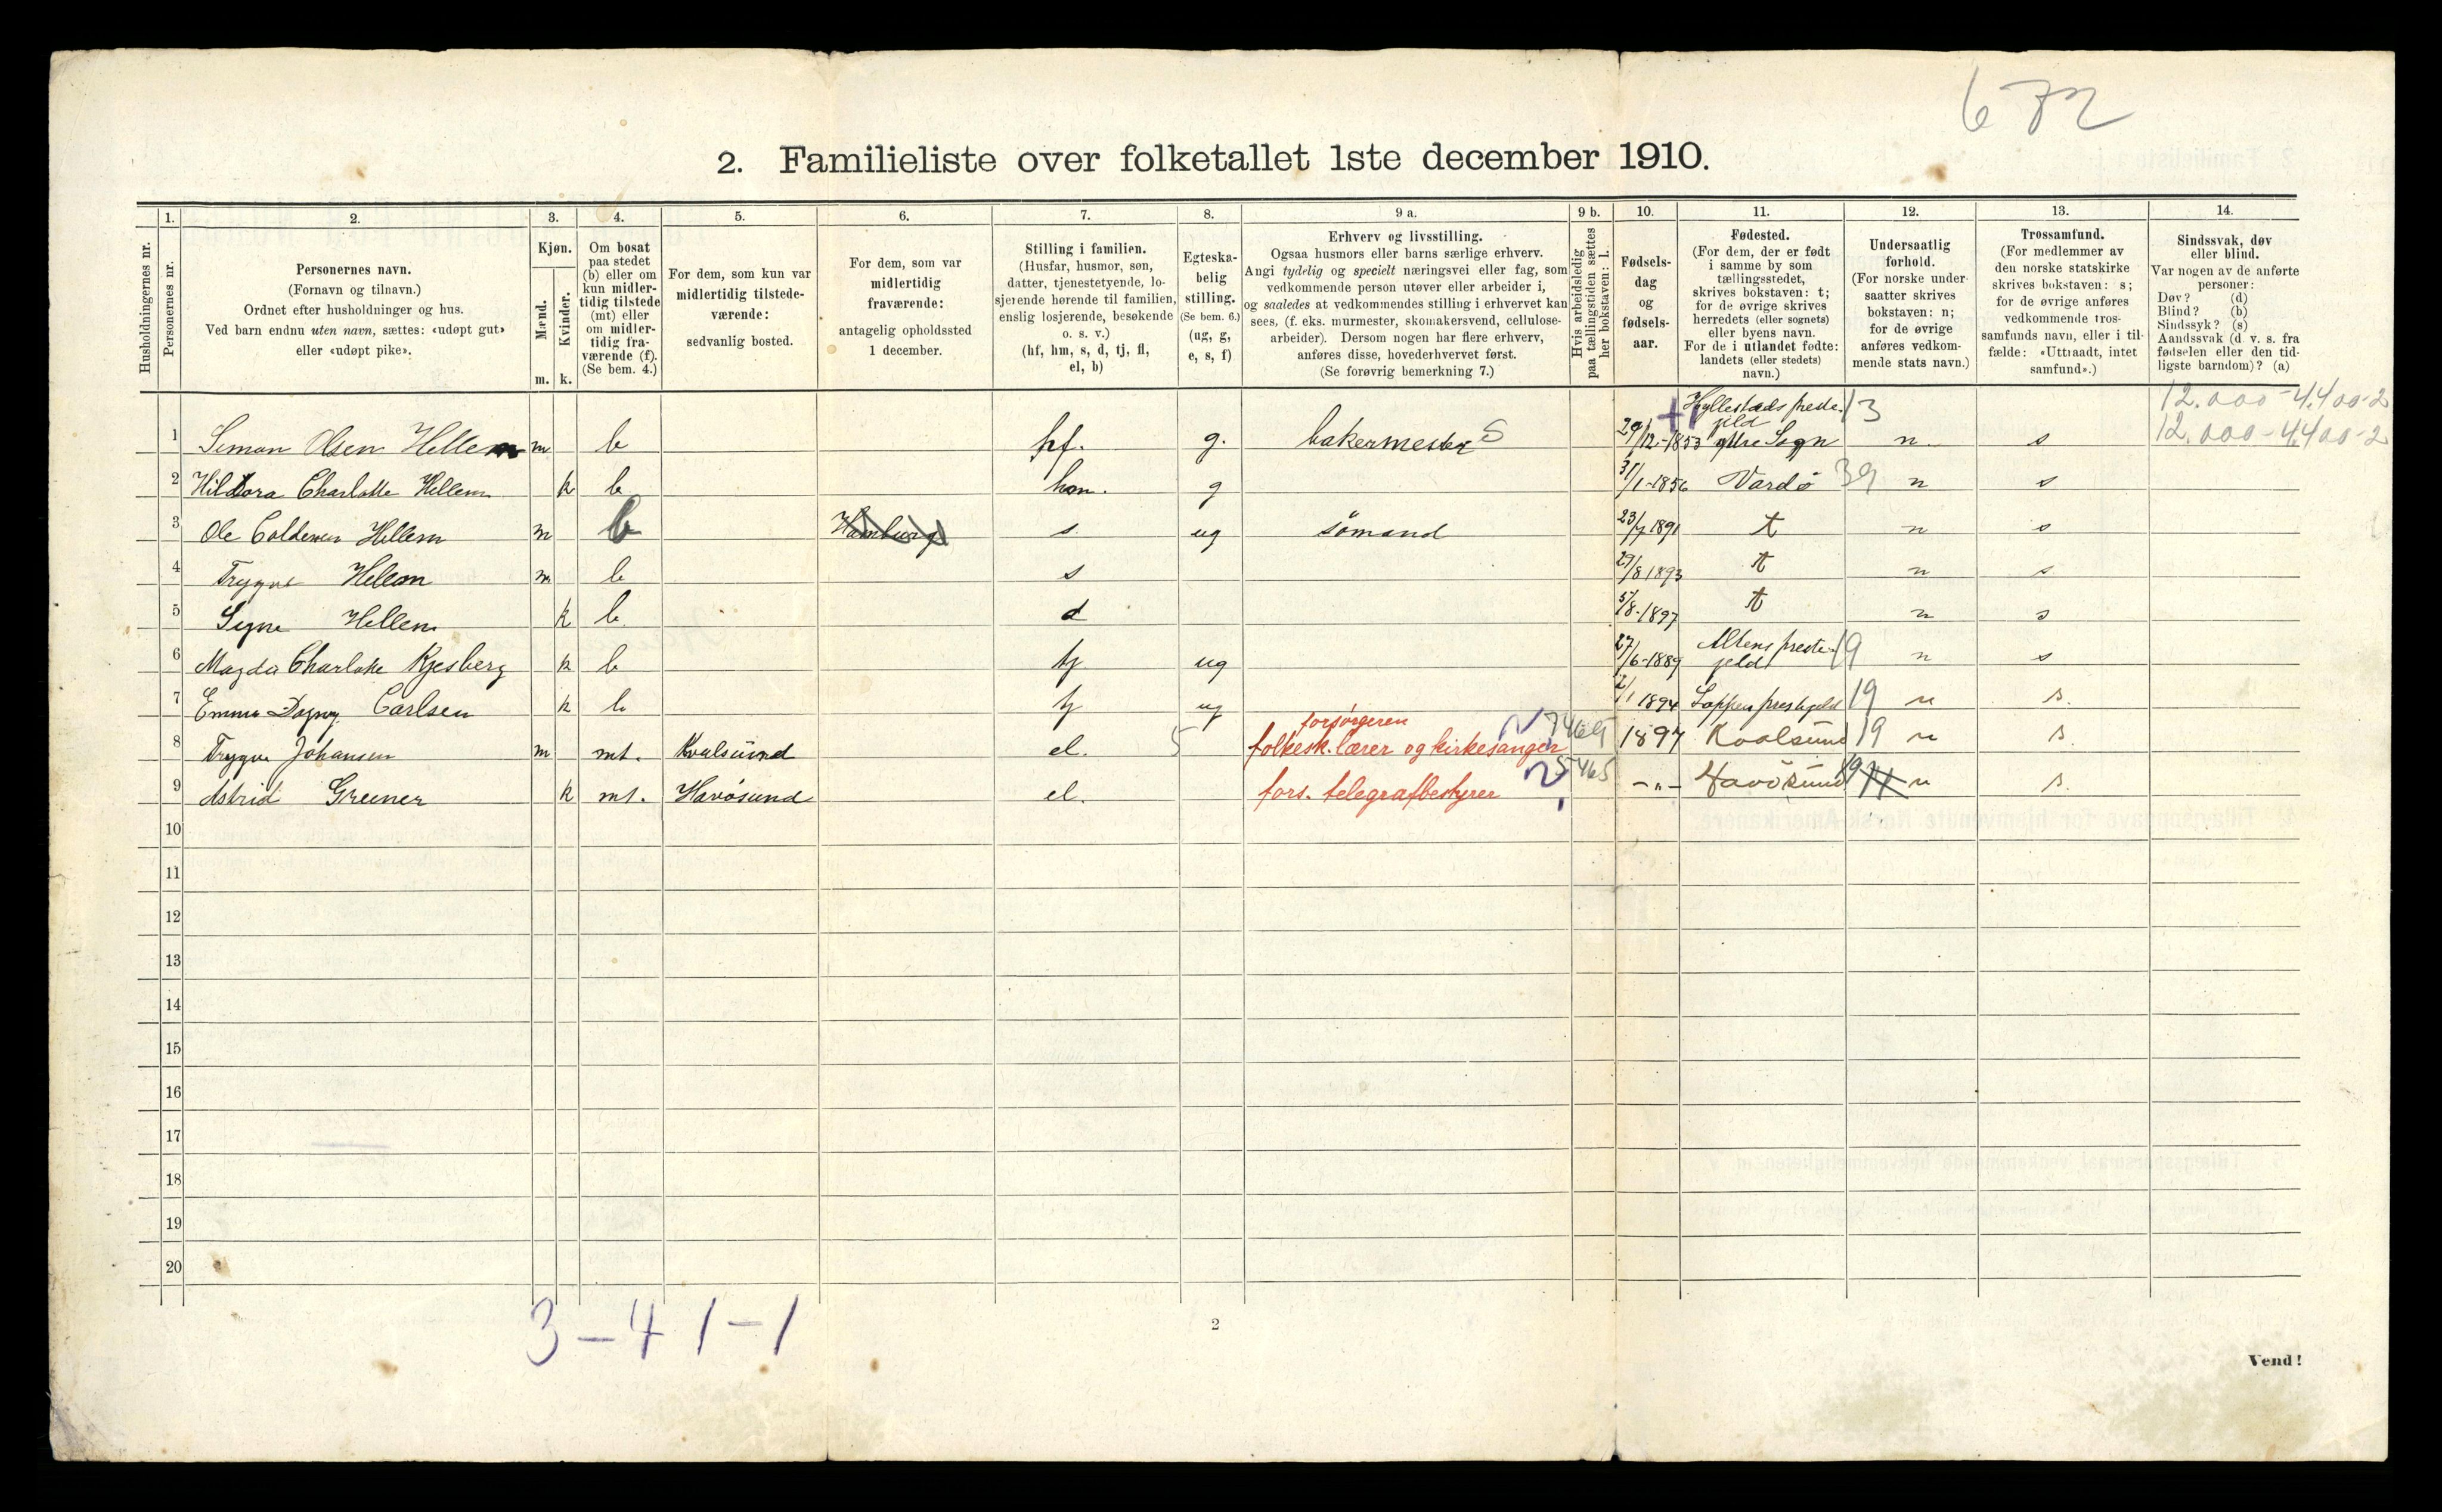 672
2. Familieliste over folketallet 1ste december 1910.
Husholdningernes nr.
1. Personernes nr.
2. Personernes navn. (Fornavn og tilnavn.) Ordnet efter husholdninger og hus. Ved barn endnu uten navn, sættes: «udøpt gut» eller «udøpt pike».
3. Kjøn. Mænd. m. Kvinder. k.
4. Om bosat paa stedet (b) eller om kun midlertidig tilstede (mt) eller om midlertidig fraværende (f). (Se bem. 4.)
5. For dem, som kun var midlertidig tilstedeværende: sedvanlig bosted.
6. For dem, som var midlertidig fraværende: antagelig opholdssted 1 december.
7. Stilling i familien. (Husfar, husmor, søn, datter, tjenestetyende, losjerende hørende til familien, enslig losjerende, besøkende o. s. v.) (hf, hm, s, d, tj, fl, el, b)
8. Egteskabelig stilling. (Se bem. 6.) (ug, g, e, s, f)
9 a. Erhverv og livsstilling. Ogsaa husmors eller barns særlige erhverv. Angi tydelig og specielt næringsvei eller fag, som vedkommende person utøver eller arbeider i, og saaledes at vedkommendes stilling i erhvervet kan sees, (f. eks. murmester, skomakersvend, cellulosearbeider). Dersom nogen har flere erhverv, anføres disse, hovederhvervet først. (Se forøvrig bemerkning 7.)
9 b. Hvis arbeidsledig paa tællingstiden sættes her bokstaven: l.
10. Fødselsdag og fødselsaar.
11. Fødested. (For dem, der er født i samme by som tællingsstedet, skrives bokstaven: t; for de øvrige skrives herredets (eller sognets) eller byens navn. For de i utlandet fødte: landets (eller stedets) navn.)
12. Undersaatlig forhold. (For norske undersaatter skrives bokstaven: n; for de øvrige anføres vedkommende stats navn.)
13. Trossamfund. (For medlemmer av den norske statskirke skrives bokstaven: s; for de øvrige anføres vedkommende trossamfunds navn, eller i tilfælde: «Uttraadt, intet samfund».)
14. Sindssvak, døv eller blind. Var nogen av de anførte personer: Døv? (d) Blind? (b) Sindssyk? (s) Aandssvak (d. v. s. fra fødselen eller den tidligste barndom)? (a)
12.000-4.400-2
1 Simon Olsen Hellem m b hf. g. bakermester S 29/12-1853 Hyllestads prestegjeld ytre Sogn 13 n s 12.000-4400-2
2 Hildora Charlotte Hellem k b hm. g 31/1-1856 Vardø 39 n s
3 Ole Hellem m b Hamburg s ug sømand 23/7 1891 t n s
4 Trygve Hellem m b s 29/8 1893 t n s
5 Signe Hellem k b d 5/8-1897 t n s
6 Magda Charlotte Kjesberg k b tj ug 27/6-1889 Altens prestegjeld 19 n s
7 Emma Dagny Carlsen k b tj ug 2/1 1894 Loppen prestgjeld 19 n s.
8 Trygve Johansen m mt. Kvalsund el. 5 forsørgeren folkesk. lærer og kirkesanger 1897 Kvalsund 19 n s.
9 Astrid Greiner k mt. Havøsund el. fors. telegrafbestyrer 5465 -"- Havösund 19 n s.
10
11
12
13
14
15
16
17
18
19
20
3-4 1-1
2
Vend!